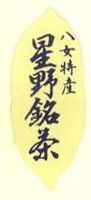 八女特産
星野銘茶